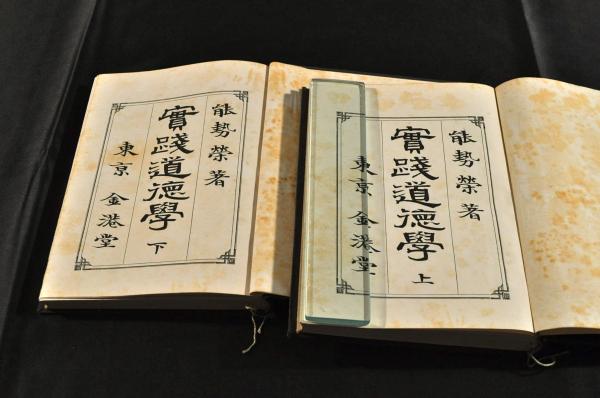 能勢榮著
實踐道德學 上
東京 金港堂
能勢榮著
實踐道德學 下
東京 金港堂